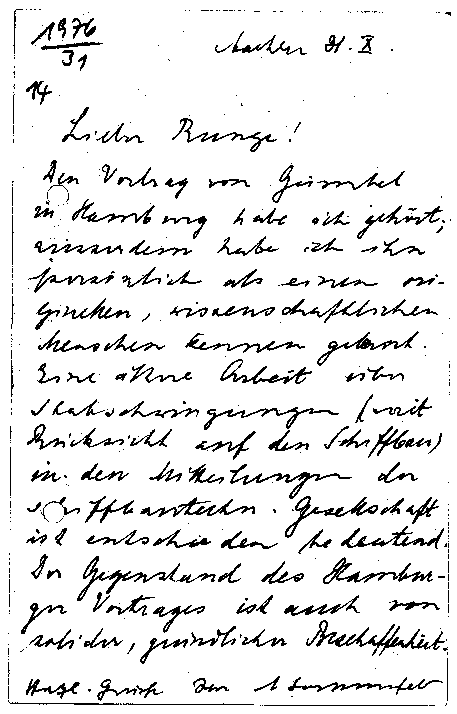 1976
31
14
Aachen 21. X.
Lieber Runge!
Den Vortrag von Gümbel
in Hamburg habe ich gehört;
ausserdem habe ich ihn
persönlich als einen ori-
ginellen, wissenschaftlichen
Menschen kennen gelernt.
Eine ältere Arbeit über
Stabschwingungen (mit
Rücksicht auf den Schiffbau)
in den Mitteilungen der
schiffbautechn. Gesellschaft
ist entschieden bedeutend.
Der Gegenstand des Hambur-
ger Vortrages ist auch von
solider, gründlicher Beschaffenheit.
Herzl. Gruß Dein A Sommerfeld